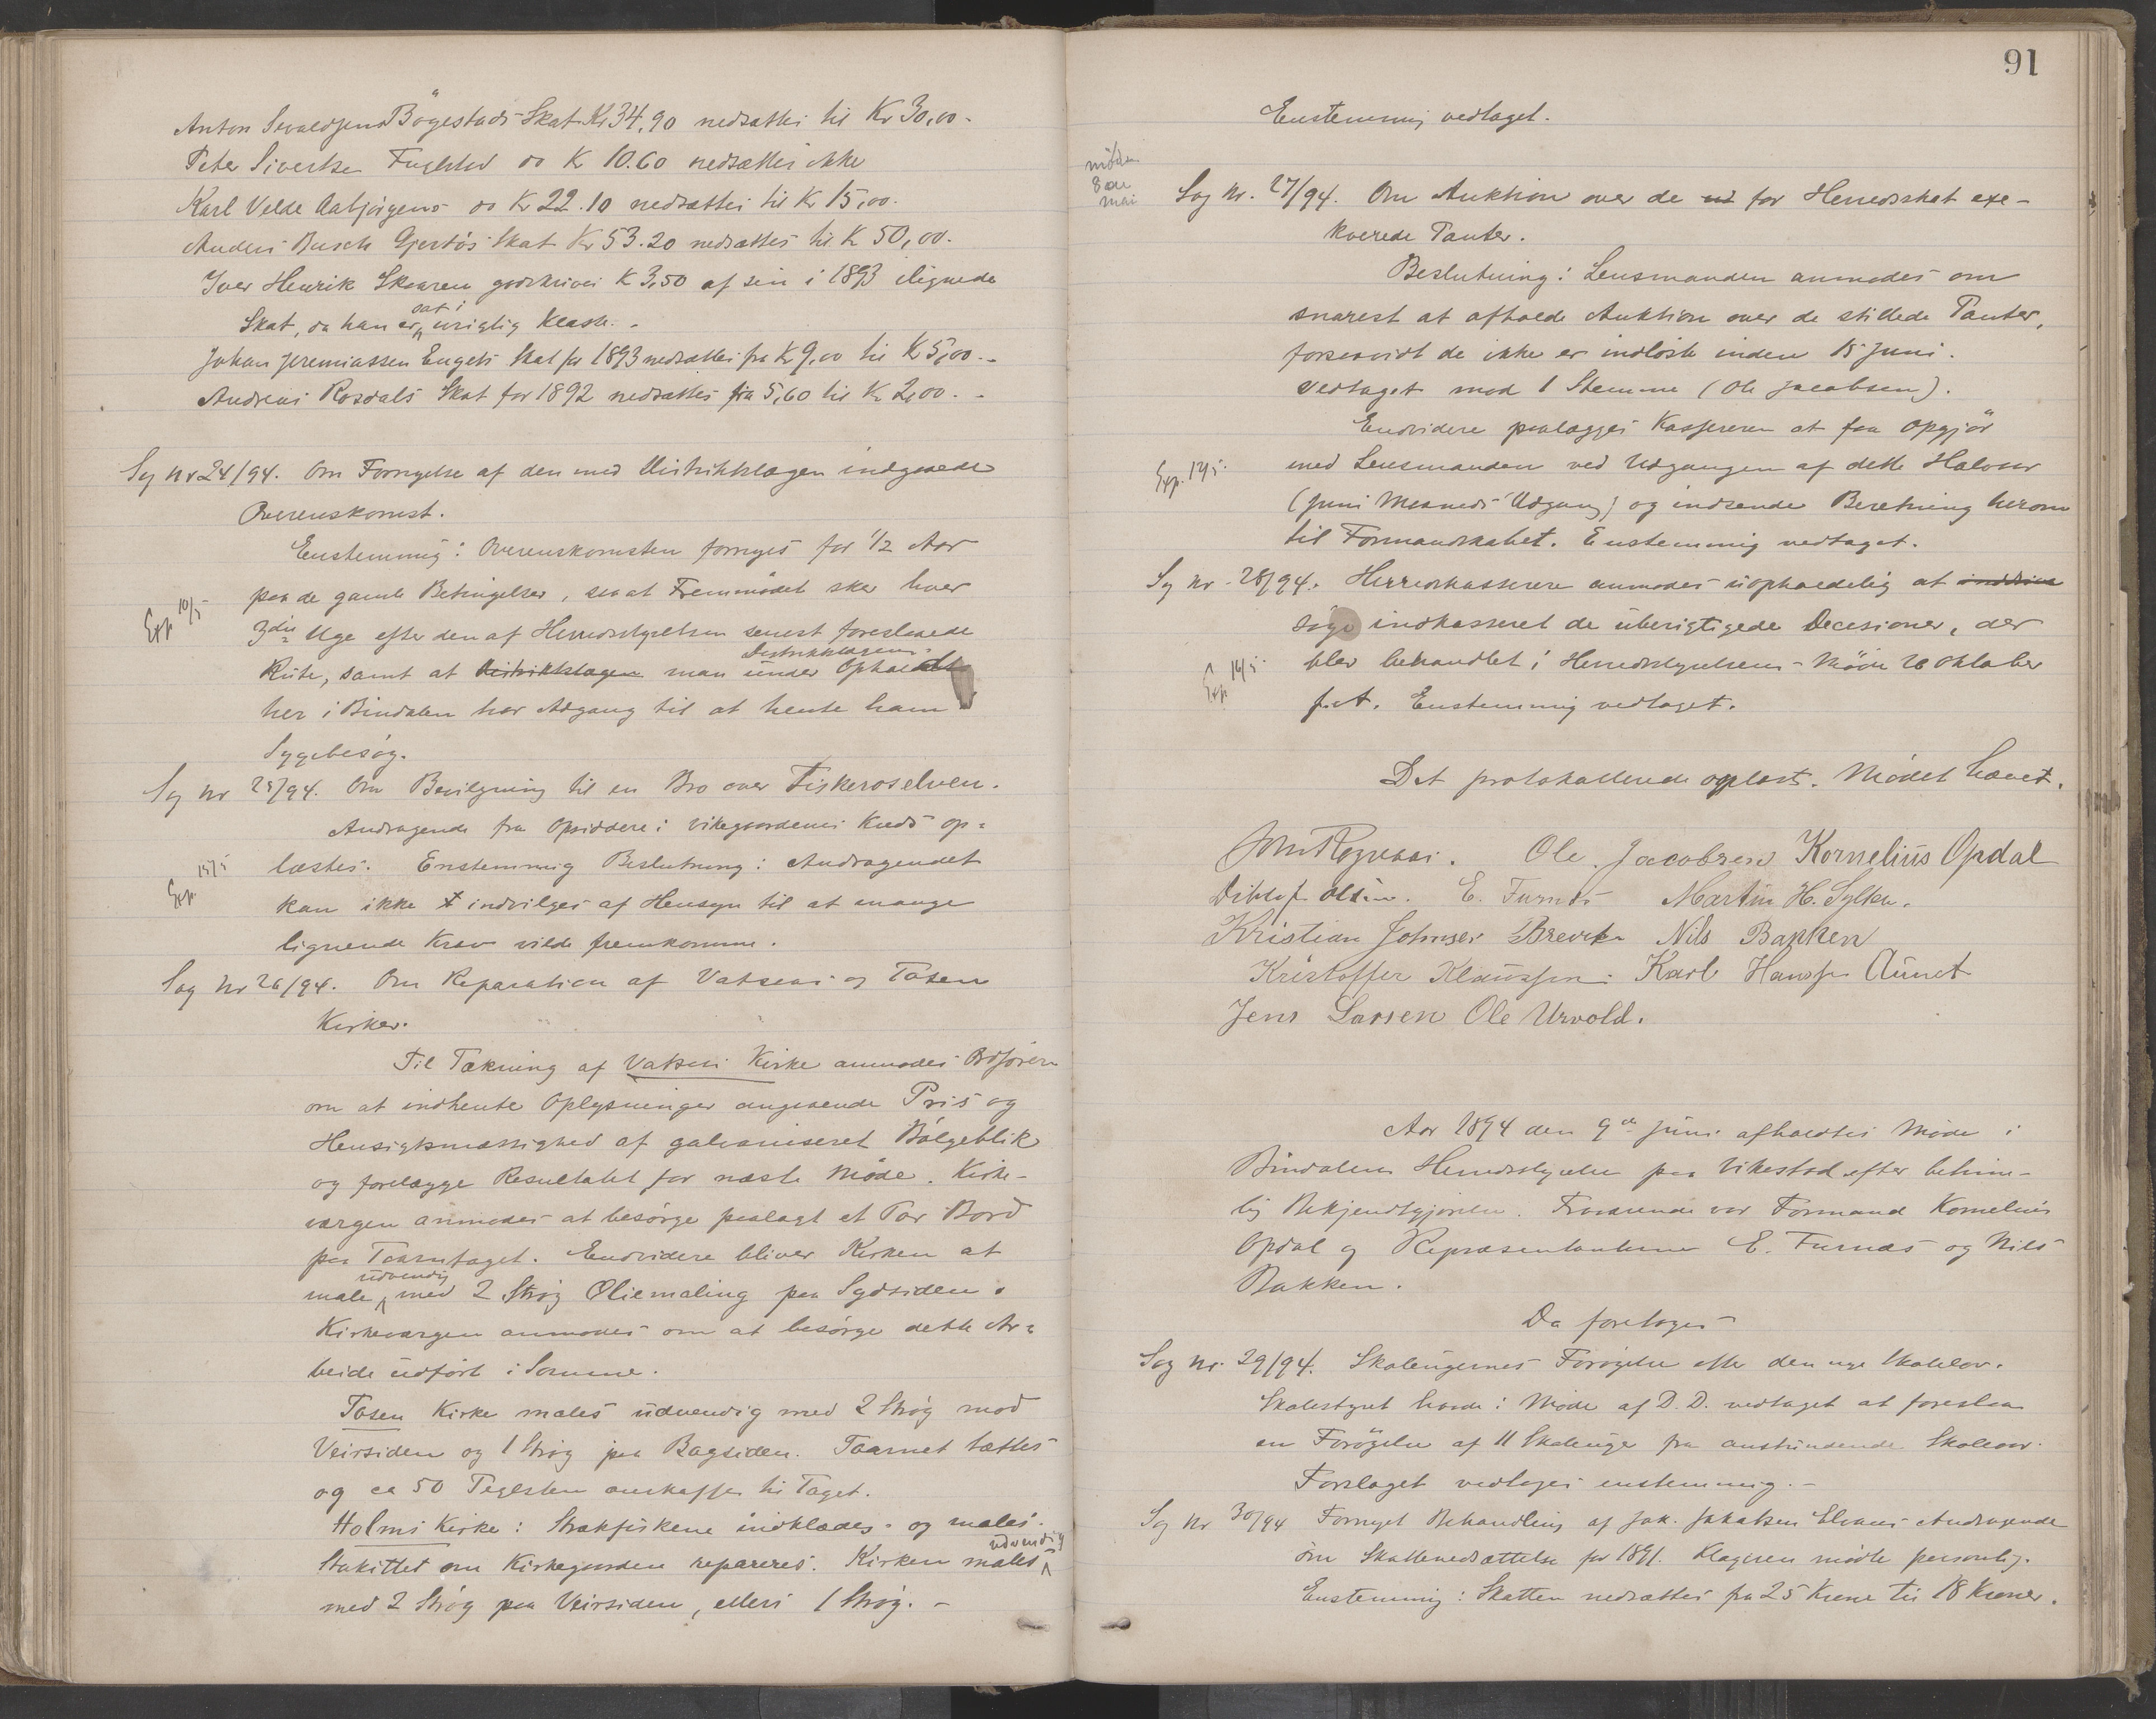 Anton Sivaldsens Bögestads Skat Kr 34,90 nedsattes til Kr 30,00.
Peter Sivertsen Fuglstad do Kr 10.60 nedsættes ikke
Karl Velde Aabjörgens do Kr 22.10 nedsættes til Kr 15,00.
Anders Busch Gjertös Skat Kr 53.20 nedsættes til Kr 50,00.
Iver Henrik Skaaren godskrives K 3,50 af sin i 1893 ilignede
Skat, da han er sat i urigtig Klasse.
Johan Jeremiassen Engets Skat for 1893 nedsættes fra Kr 9,00 til Kr 5,00.
Andreas Rosdals Skat for 1892 nedsættes fra 5,60 til Kr 2,00.
Sag nr 24/94. Om Fornyelse af den med Distriktslægen indgaaede
Overenskomst.
Enstemmig: Overenskomsten fornyes for 1/2 Aar
paa de gamle Betingelser, saa at Fremmödet sker hver
Exp 10/5
3die Uge efter den af Herredsstyrelsen senest foreslaaede
Rute, samt at Distriktslægen man under Distriktslægens Ophold
her i Bindalen har Adgang til at hente ham
Sygebesög.
Sag nr 25/94. Om Bevilgning til en Bro over Fiskeroselven.
Andragende fra Opsiddere i Vikegaardenes Kreds op-
læstes. Enstemmig Beslutning: Andragendet
Exp. 15/5
kan ikke indvilges af Hensyn til at mange
lignende Krav vilde fremkomme.
Sag nr 26/94. Om Reparation af Vatsaas og Tosen
Kirker.
Til Tækning af Vatsaas Kirke anmodes Ordföreren
om at indhente Oplysninger angaaende Pris og
Hensigtsmæssighed af galvaniseret Bölgeblik
og forelægge Resultatet for næste Möde. Kirke-
værgen anmodes at besörge paalagt et Par Bord
paa Taarntaget. Endvidere bliver Kirken at
male udvendig med 2 Strög Oliemaling paa Sydsiden.
Kirkeværgen anmodes om at besörge dette Ar-
beide udfört i Sommer.
Tosen Kirke males udvendig med 2 Strög mod
Veirsiden og 1 Strög paa Bagsiden. Taarnet tættes
og ca 50 Teglsten anskaffes til Taget.
Holms Kirke: Strækfiskene indklædes og males.
Stakittet om Kirkegaarden repareres. Kirken males udvendig
med 2 Strög paa Veirsiden, ellers 1 Strög. -
91
Enstemmig vedtaget.
möde
8de
mai
Sag Nr. 27/94. Om Auktion over de ud for Herredsskat exe-
kverede Panter.
Beslutning: Lensmanden anmodes om
snarest at afholde Auktion over de stillede Panter,
forsaavidt de ikke er indlöste inden 15 Juni.
Vedtaget mod 1 Stemme (Ole Jacobsen).
Endvidere paalægges Kassereren at faa Opgjör
Exp. 14/5.
med Lensmanden ved Udgangen af dette Halvaar
(Juni Maaneds Udgang) og indsende Beretning herom
til Formandskabet. Enstemmig vedtaget.
Sag nr. 28/94. Herredskassereren anmodes uopholdelig at inddrive
søge indkasseret de uberigtigede Decisioner, der
Exp. 14/5.
blev behandlet i Herredsstyrelsens Möde 26 Oktober
f.A. Enstemmig vedtaget.
Det protokollerede oplæst. Mödet hævet.
Ole Jacobsen Kornelius Opdal
Ditlef Olsen. E. Furnes Martin H. Sylten.
Kristian Johnsen Brevik Nils Bakken
Kristoffer Klaussen. Karl Hansen Aunet
Jens Larsen Ole Urvold.
Aar 1894 den 9de Juni afholdtes Möde i
Bindalens Herredsstyrelse paa Vikestad efter betime-
lig Bekjendtgjörelse. Fraværende var Formand Kornelius
Opdal og Repræsentanterne E. Furnæs og Nils
Bakken.
Da foretoges
Sag nr. 29/94. Skoleugernes Forögelse efter den nye Skolelov.
Skolestyret havde i Möde af D.D. vedtaget at foreslaa
en Forögelse af 11 Skoleuger fra anstundende Skoleaar.
Forslaget vedtoges enstemmig. -
Sag Nr 30/94 Fornyet Behandling af Jak. Jakobsen Elvens Andragende
om Skattenedsættelse for 1891. Klageren mödte personlig.
Enstemmig: Skatten nedsættes fra 25 Kroner til 18 Kroner.